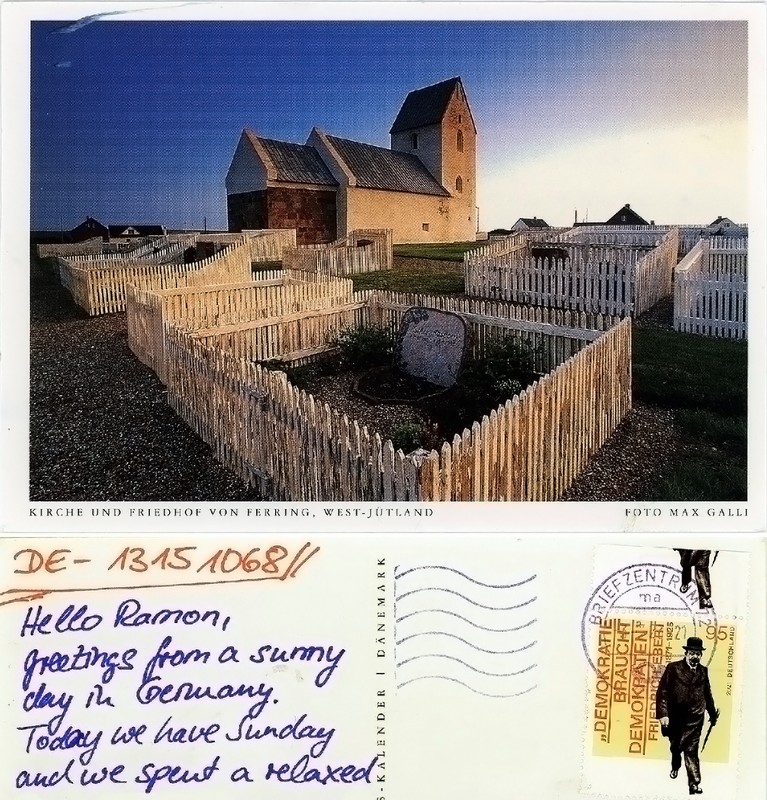 KIRCHE UND FRIEDHOF VON FERRING, WEST-JÜTLAND
FOTO MAX GALLI
DE- 13151068//
Hello Ramon,
greetings from a sunny
day in Germany.
Today we have Sunday
and we spent a relaxed
S-KALENDER | DÄNEMARK
BRIEFZENTRUM 72
ma
21
95
„DEMOKRATIE
BRAUCHT
DEMOKRATEN“
FRIEDRICH EBERT
1871-1925
2021 DEUTSCHLAND